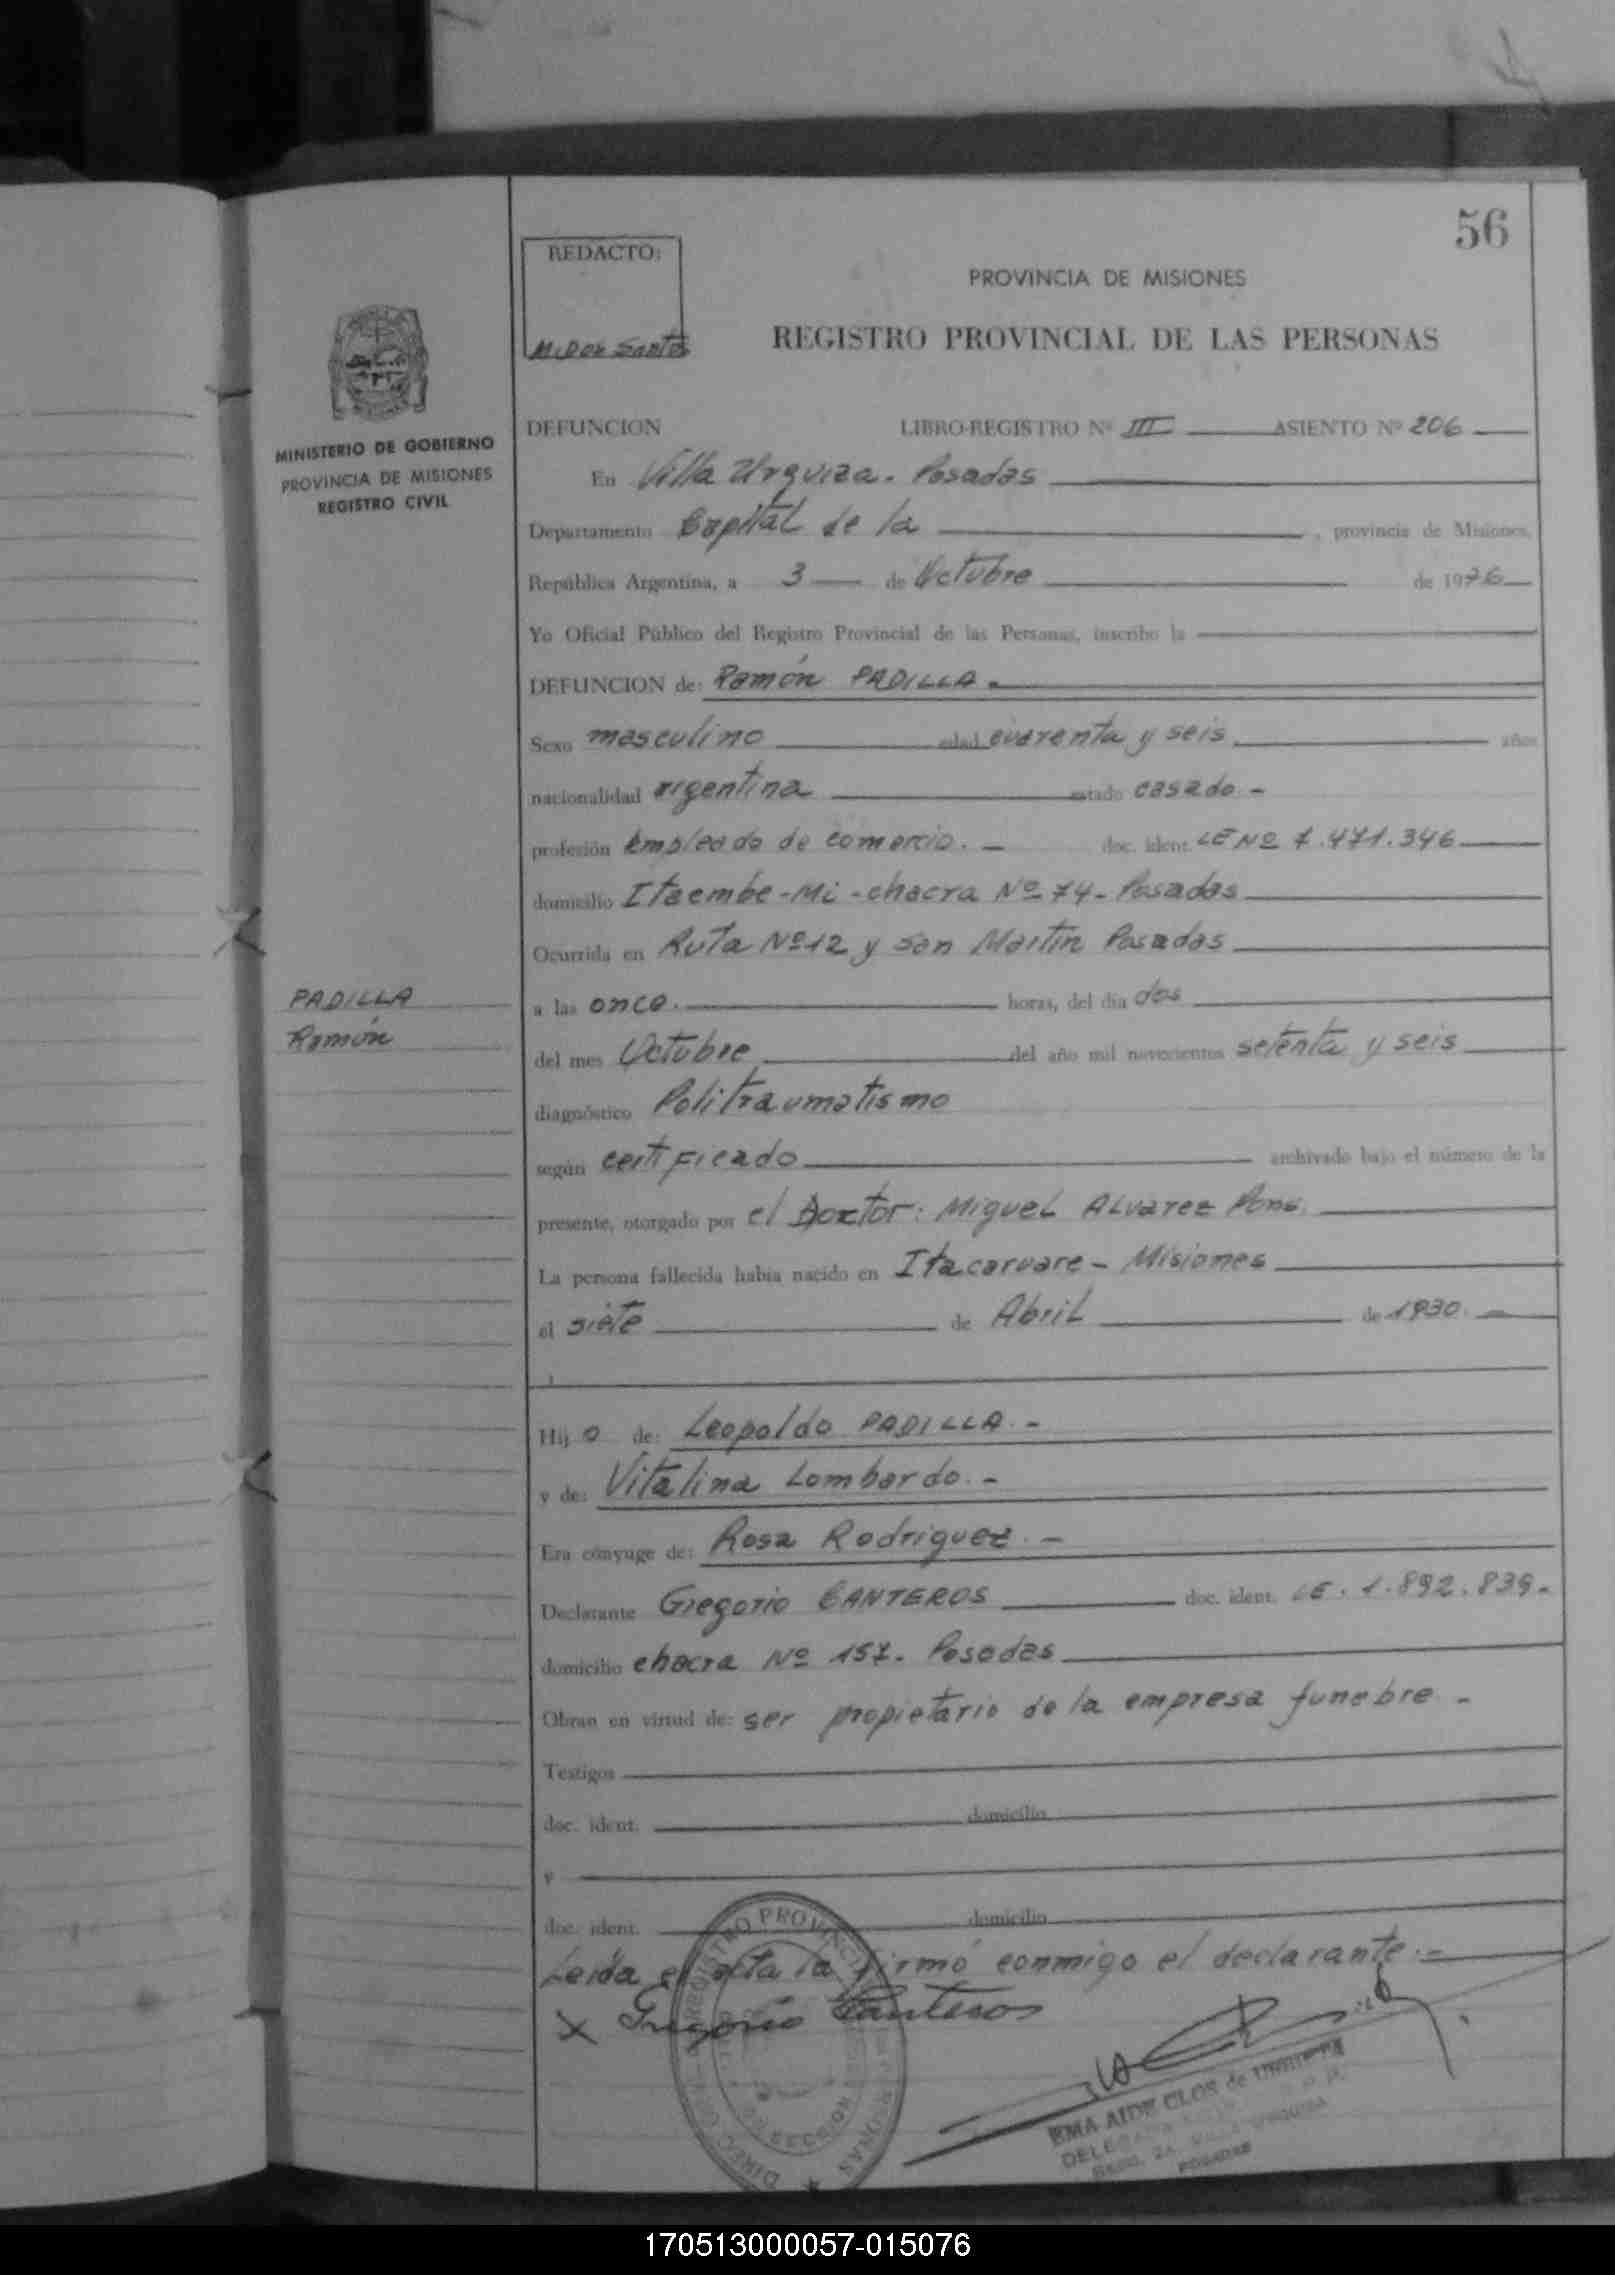 56
REDACTO:
M. Dos Santos
PROVINCIA DE MISIONES
REGISTRO PROVINCIAL DE LAS PERSONAS
MINISTERIO DE GOBIERNO
PROVINCIA DE MISIONES
REGISTRO CIVIL
DEFUNCION LIBRO-REGISTRO Nº III ASIENTO Nº 206
En Villa Urquiza. Posadas
Departamento Capital de la , provincia de Misiones,
República Argentina, a 3 de Octubre de 1976
Yo Oficial Público del Registro Provincial de las Personas, inscribo la
DEFUNCION de: Ramón PADILLA.
Sexo masculino edad cuarenta y seis años
nacionalidad argentina estado casado -
profesión Empleado de comercio. - doc. ident. LE Nº 7.471.346
domicilio Itaembe-Mi-chacra Nº 74- Posadas
Ocurrida en Ruta Nº12 y San Martín Posadas
PADILLA
Ramón
a las once. horas, del día dos
del mes Octubre del año mil novecientos setenta y seis
diagnóstico Politraumatismo
según certificado archivado bajo el número de la
presente, otorgado por el Doctor: Miguel Alvarez Pons.
La persona fallecida había nacido en Itacaruare - Misiones
el siete de Abril de 1930. -
Hij o de: Leopoldo PADILLA. -
y de: Vitalina Lombardo. -
Era cónyuge de: Rosa Rodriguez. -
Declarante Gregorio CANTEROS doc. ident. LE. 1.892.839.
domicilio chacra Nº 157. Posadas
Obran en virtud de: ser propietario de la empresa funebre -
Testigos
doc. ident. domicilio
y
doc. ident. domicilio
Leída el acta la firmó conmigo el declarante. -
x Gregorio Canteros
EMA AIDE CLOS de
POSADAS
170513000057-015076